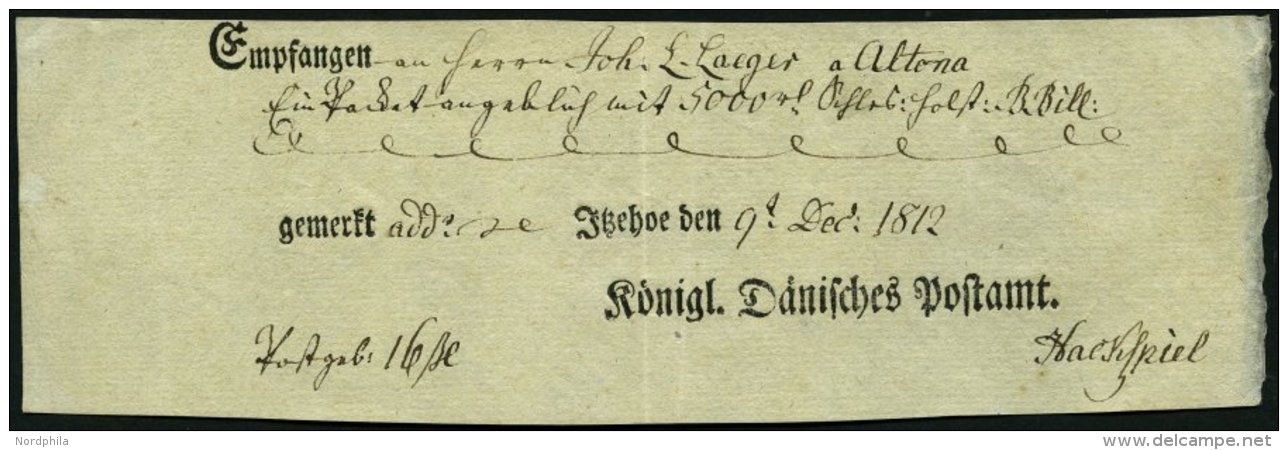 Empfangen an Herrn Joh. L. Laeger a Altona
Ein Packet angeblich mit 5000 rl Schles: Holst: B. Bill:
gemerkt add: Itzehoe den 9t Dec: 1812
Königl. Dänisches Postamt.
Postgeb: 16 ßl Hackspiel
Nordphila www.delcampe.net